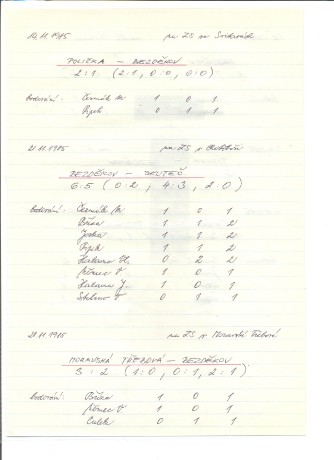 14.11.1985 na ZS ve Svitavách
POLIČKA – BEZDĚKOV
2:1 (2:1, 0:0, 0:0)
bodování: Čermák M 1 0 1
1 0 1
21.11.1985 na ZS v Chotěboři
BEZDĚKOV – SKUTEČ
6:5 (0:2, 4:3, 2:0)
bodování: Čermák M 1 0 1
Bříza 1 1 2
Joska 1 1 2
1 1 2
Halama 0 2 2
Němec V 1 0 1
Halama J. 1 0 1
0 1 1
28.11.1985 na ZS v Moravské Třebové
MORAVSKÁ TŘEBOVÁ – BEZDĚKOV
3:2 (1:0, 0:1, 2:1)
bodování: Bříza 1 0 1
Němec V 1 0 1
Culek 0 1 1